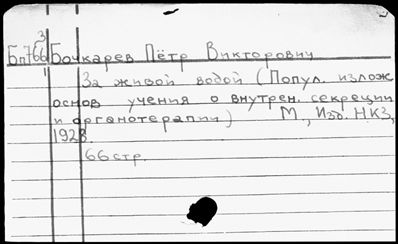 3
Бп766 Бочкарев Пётр Викторович
1
За живой водой (Попул. излож
основ учения о внутрен. секреции
и органотерапии) М., Изд. НКЗ,
1928.
66 стр.